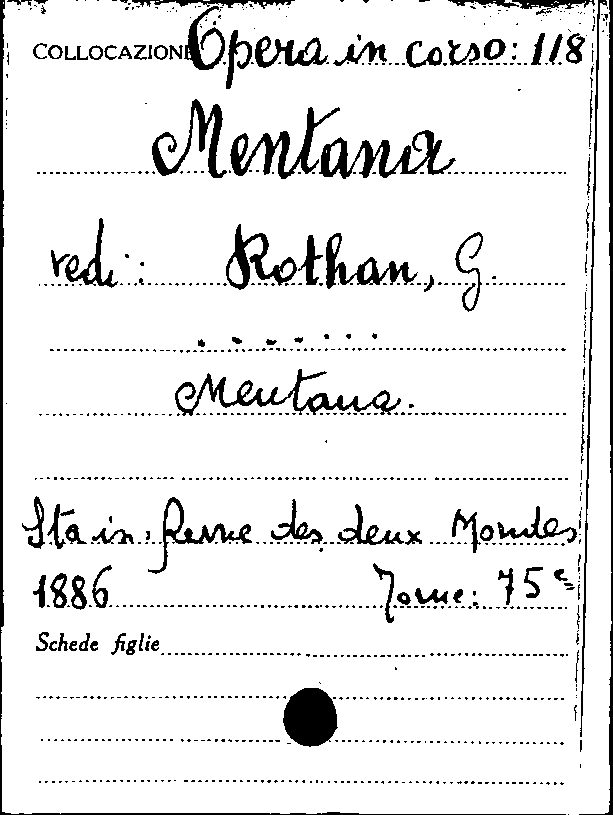 COLLOCAZIONE Opera in corso: 118
Mentana
vedi: Rothan, G.
.......
Mentana.
Sta in: Revue des deux Mondes
1886 Tome: 75e
Schede figlie